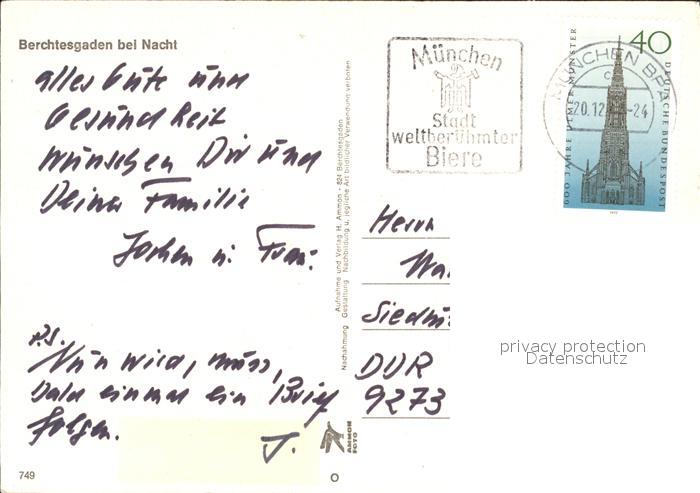 Berchtesgaden bei Nacht
alles Gute und
Gesundheit
wünschen Dir und
Deiner Familie
Jochen u. Frau.
P.S.
Nun wird, muss,
bald einmal ein Brief
folgen.
J.
749
Aufnahme und Verlag H. Ammon - 824 Berchtesgaden
Nachahmung Gestaltung Nachbildung u. jegliche Art bildlicher Verwendung verboten
AMMON
FOTO
München
Stadt
weltberühmter
Biere
MÜNCHEN
20.12
-24
40
600 JAHRE ULMER MÜNSTER
DEUTSCHE BUNDESPOST
1977
Herrn
Siedlu
DDR
9273
privacy protection
Datenschutz